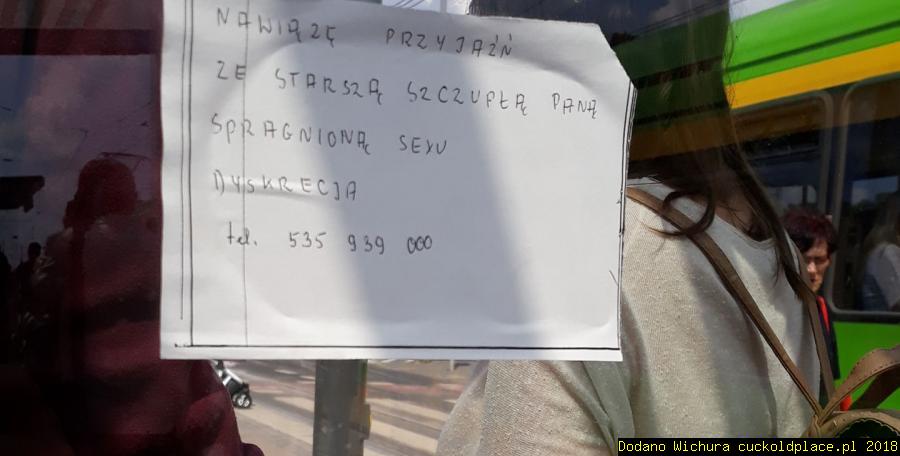 NAWIĄZĘ PRZYJAŹŃ
ZE STARSZĄ SZCZUPŁĄ PANĄ
SPRAGNIONĄ SEXU
DYSKRECJA
tel. 535 939 000
Dodano Wichura cuckoldplace.pl 2018